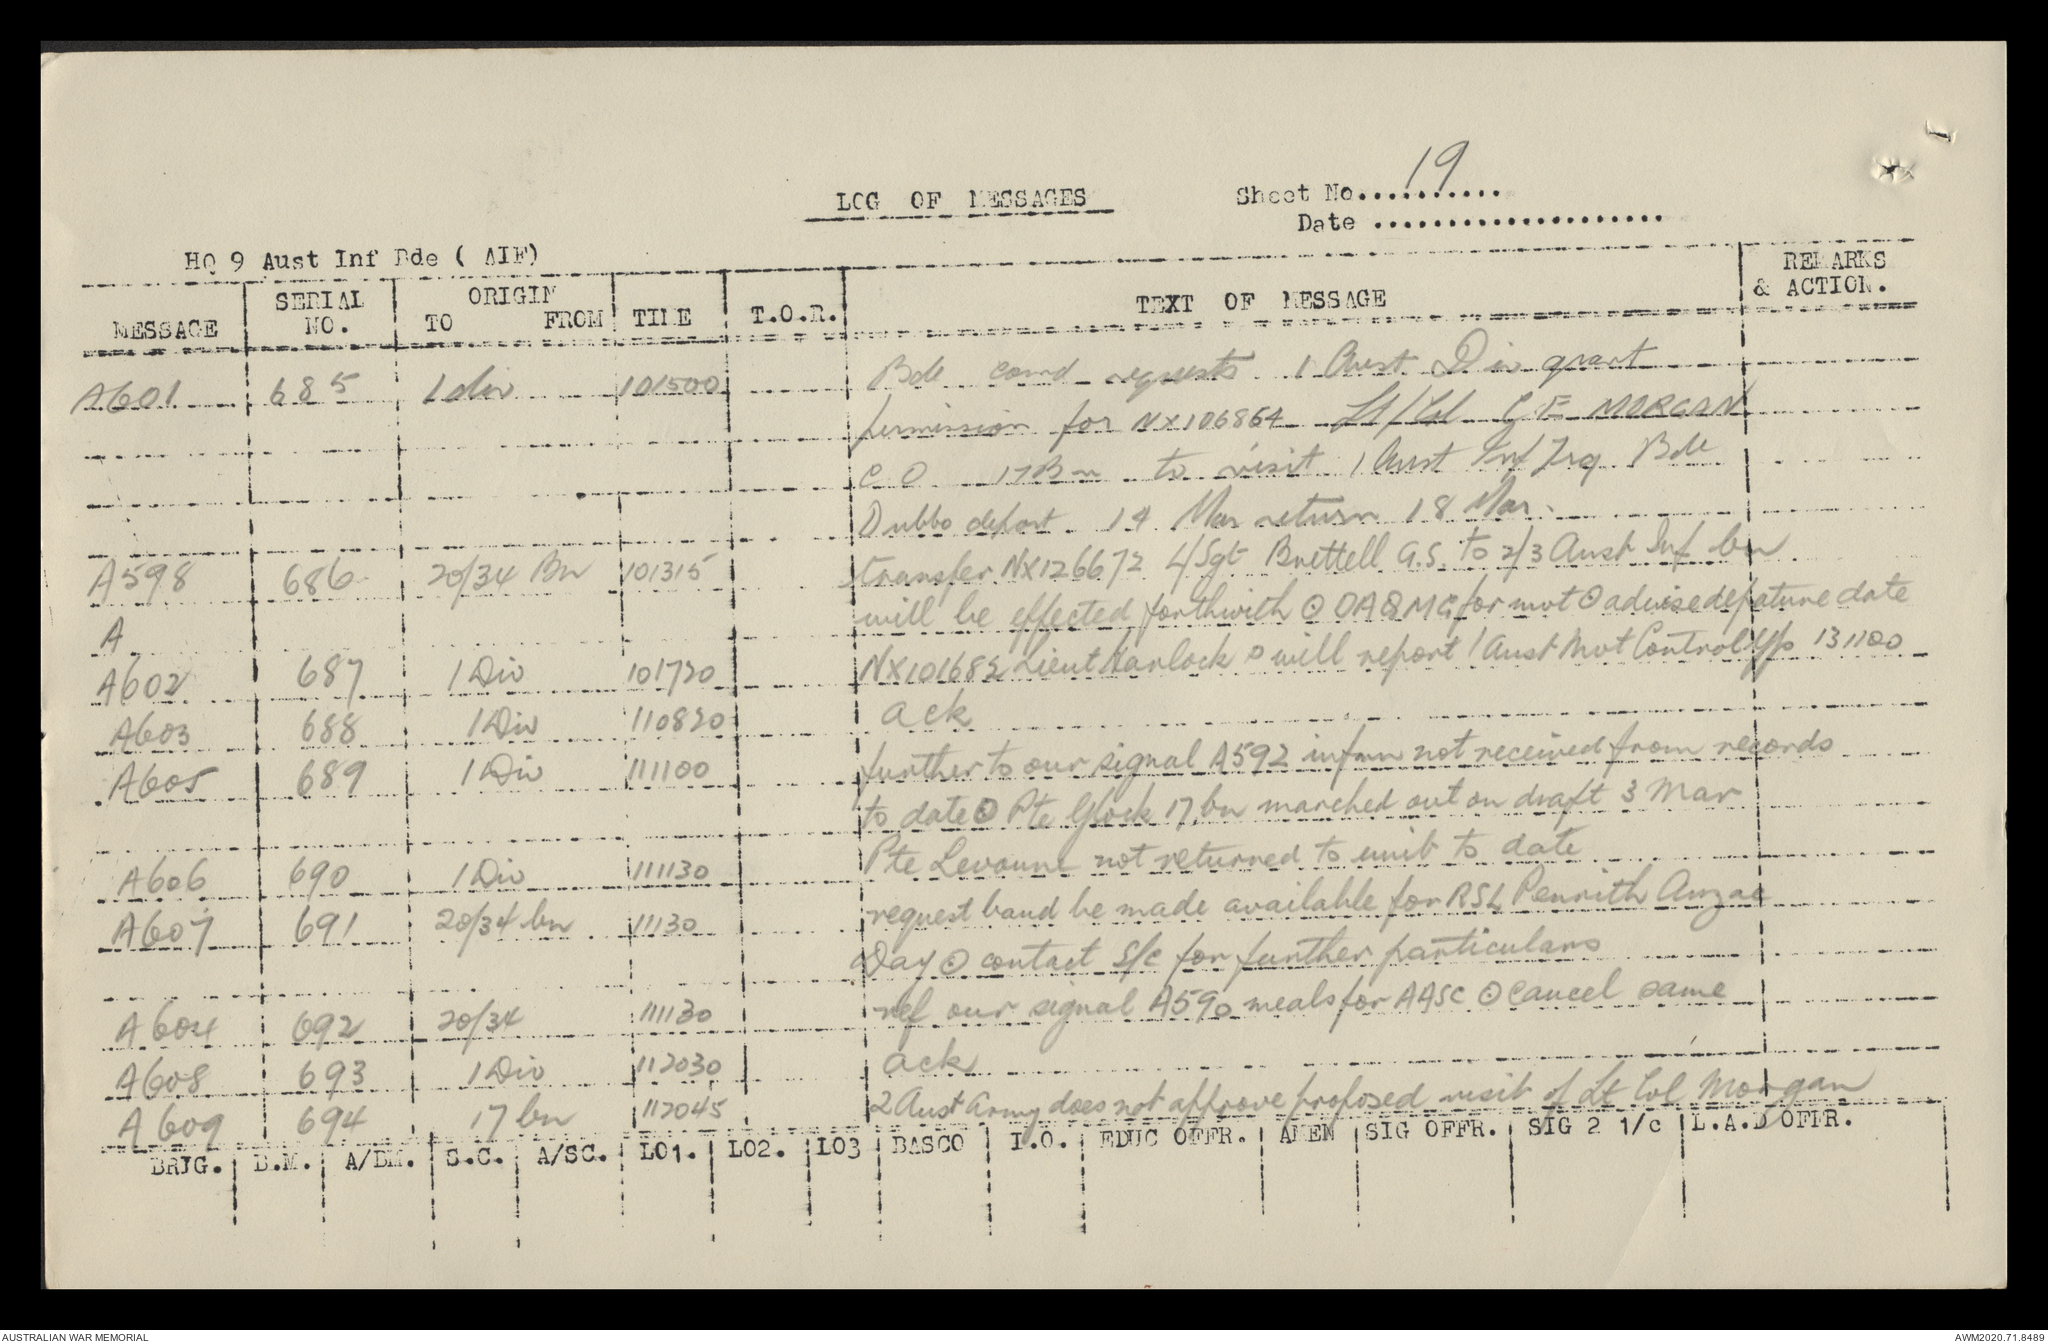 LOG OF MESSAGES
Sheet No........... 19
Date ......................
HQ 9 Aust Inf Bde ( AIF)
MESSAGE SERIAL NO. ORIGIN TO FROM TIME T.O.R. TEXT OF MESSAGE REMARKS & ACTION.
A601 685 1 div 101500 Bde comd requests 1 Aust Div grant
permission for NX106864 Lt/Col G E MORGAN
C O 17 Bn to visit 1 Aust Inf Trg Bde
Dubbo depart 14 Mar return 18 Mar.
A598 686 20/34 Bn 101315 transfer NX126672 L/Sgt Brettell G.S. to 2/3 Aust Inf bn
A will be effected forthwith ⊙ OA&MG for mvt ⊙ advise depature date
A602 687 1 Div 101720 NX101682 Lieut Harlock ⊙ will report 1 Aust Mvt Control Gp 131100
A603 688 1 Div 110820 ack
A605 689 1 Div 111100 further to our signal A592 infmn not received from records
to date ⊙ Pte Glock 17 bn marched out on draft 3 Mar
A606 690 1 Div 111130 Pte not returned to unit to date
A607 691 20/34 bn 11130 request band be made available for RSL Penrith Anzac
Day ⊙ contact S/C for further particulars
A604 692 20/34 111130 ref our signal A590 meals for AASC ⊙ Cancel same
A608 693 1 Div 112030 ack
A609 694 17 bn 112045 2 Aust Army does not approve proposed visit of Lt Col Morgan
BRIG. B.M. A/BM. S.C. A/SC. LO1. LO2. LO3 BASCO I.O. EDUC OFFR. AMEN SIG OFFR. SIG 2 1/c L.A.D OFFR.
AUSTRALIAN WAR MEMORIAL
AWM2020.71.8489